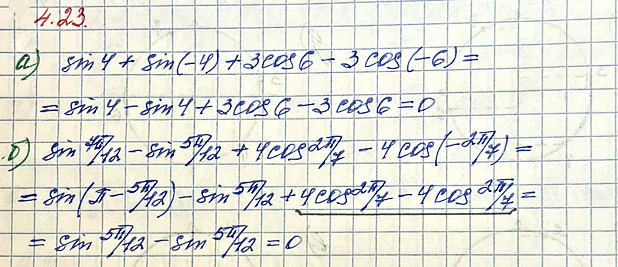 4.23.
а) sin4 + sin(-4) + 3cos6 - 3cos(-6) =
= sin4 - sin4 + 3cos6 - 3cos6 = 0
б) sin 7π/12 - sin 5π/12 + 4cos 2π/7 - 4cos(-2π/7) =
= sin(π - 5π/12) - sin 5π/12 + 4cos 2π/7 - 4cos 2π/7 =
= sin 5π/12 - sin 5π/12 = 0